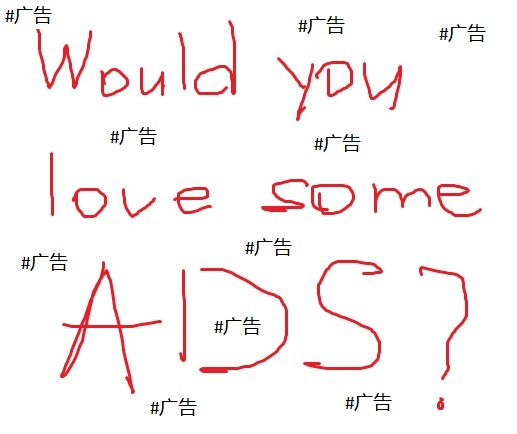 #广告
#广告
#广告
Would you
#广告
#广告
love some
#广告
#广告
ADS?
#广告
#广告
#广告